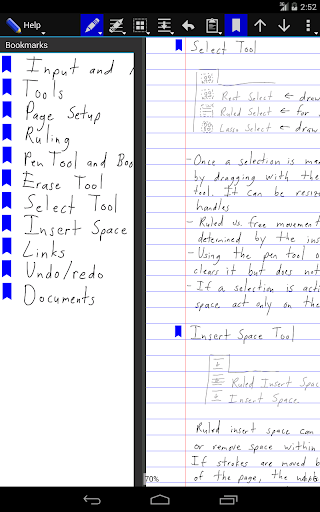 2:52
Help
Bookmarks
Input and
Tools
Page Setup
Ruling
Pen Tool and Boo
Erase Tool
Select Tool
Insert Space
Links
Undo/redo
Documents
Select Tool
Rect Select ← draw
Ruled Select ← for
Lasso Select ← draw
- Once a selection is ma
by dragging with the
tool. It can be resiz
handles
- Ruled vs. free movemen
determined by the ins
- Using the pen tool o
clears it but does not
- If a selection is acti
space act only on the
Insert Space Tool
Ruled Insert Spac
Insert Space
Ruled insert space can
or remove space within
If strokes are moved b
of the page, the
70%